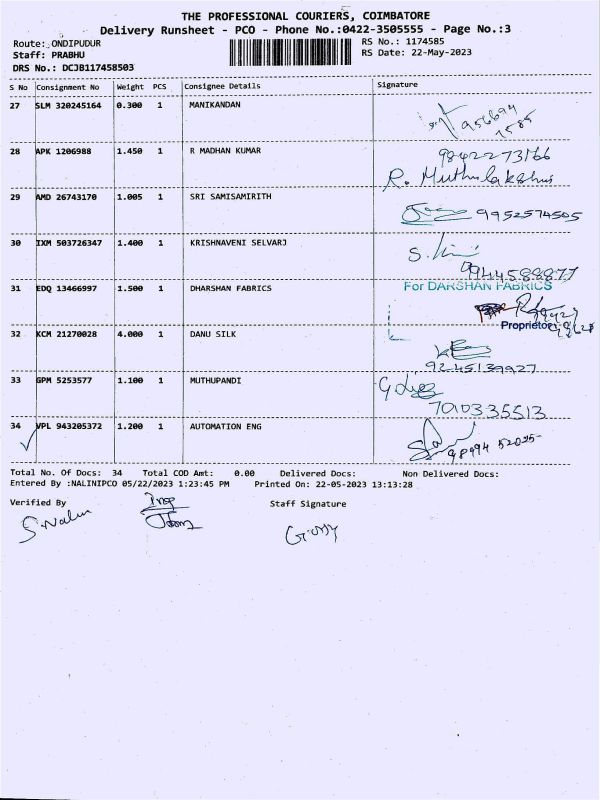 THE PROFESSIONAL COURIERS, COIMBATORE
Delivery Runsheet - PCO - Phone No.:0422-3505555 - Page No.:3
Route: ONDIPUDUR
RS No.: 1174585
Staff: PRABHU
RS Date: 22-May-2023
DRS No.: DCJB117458503
S No Consignment No Weight PCS Consignee Details Signature
27 SLM 320245164 0.300 1 MANIKANDAN
28 APK 1206988 1.450 1 R MADHAN KUMAR
9842273166
R. Muthulakshmi
29 AMD 26743170 1.005 1 SRI SAMISAMIRITH
9952574505
30 IXM 503726347 1.400 1 KRISHNAVENI SELVARJ
9944588877
31 EDQ 13466997 1.500 1 DHARSHAN FABRICS
For DARSHAN FABRICS
Proprietor
32 KCM 21270028 4.000 1 DANU SILK
9245139927
33 GPM 5253577 1.100 1 MUTHUPANDI
7010335513
34 VPL 943205372 1.200 1 AUTOMATION ENG
98994 52025
Total No. Of Docs: 34 Total COD Amt: 0.00 Delivered Docs: Non Delivered Docs:
Entered By :NALINIPCO 05/22/2023 1:23:45 PM Printed On: 22-05-2023 13:13:28
Verified By Staff Signature